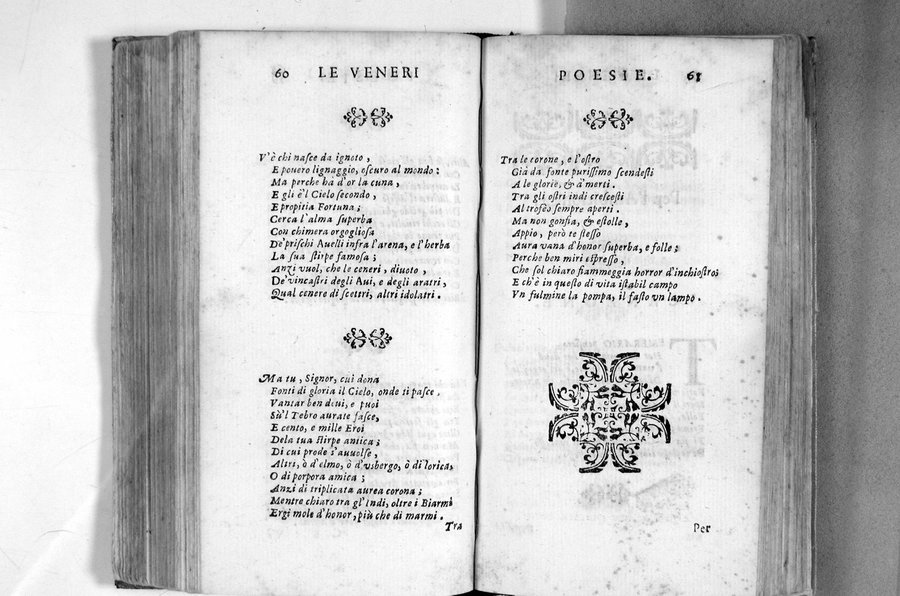 60 LE VENERI
V'è chi nasce da ignoto,
E pouero lignaggio, oscuro al mondo:
Ma perche hà d'or la cuna,
E gli è'l Cielo secondo,
E propitia Fortuna;
Cerca l'alma superba
Con chimera orgogliosa
De'prischi Auelli infra l'arena, e l'herba
La sua stirpe famosa;
Anzi vuol, che le ceneri, diuoto,
De'vincastri degli Aui, e degli aratri,
Qual cenere di scettri, altri idolatri.
Ma tu, Signor, cui dona
Fonti di gloria il Cielo, onde ti pasce,
Vantar ben deui, e puoi
Sù'l Tebro aurate fasce,
E cento, e mille Eroi
Dela tua stirpe antica;
Di cui prode s'auuolse,
Altri, ò d'elmo, ò d'vsbergo, ò di lorica,
O di porpora amica;
Anzi di triplicata aurea corona;
Mentre chiaro tra gl'Indi, oltre i Biarmi
Ergi mole d'honor, più che di marmi.
Tra
POESIE. 61
Tra le corone, e l'ostro
Già da fonte purissimo scendesti
A le glorie, & a'merti.
Tra gli ostri indi crescesti
Al trofeo sempre aperti.
Ma non gonfia, & estolle,
Appio, però te stesso
Aura vana d'honor superba, e folle;
Perche ben miri espresso,
Che sol chiaro fiammeggia horror d'inchiostro;
E ch'è in questo di vita istabil campo
Vn fulmine la pompa, il fasto vn lampo.
Per